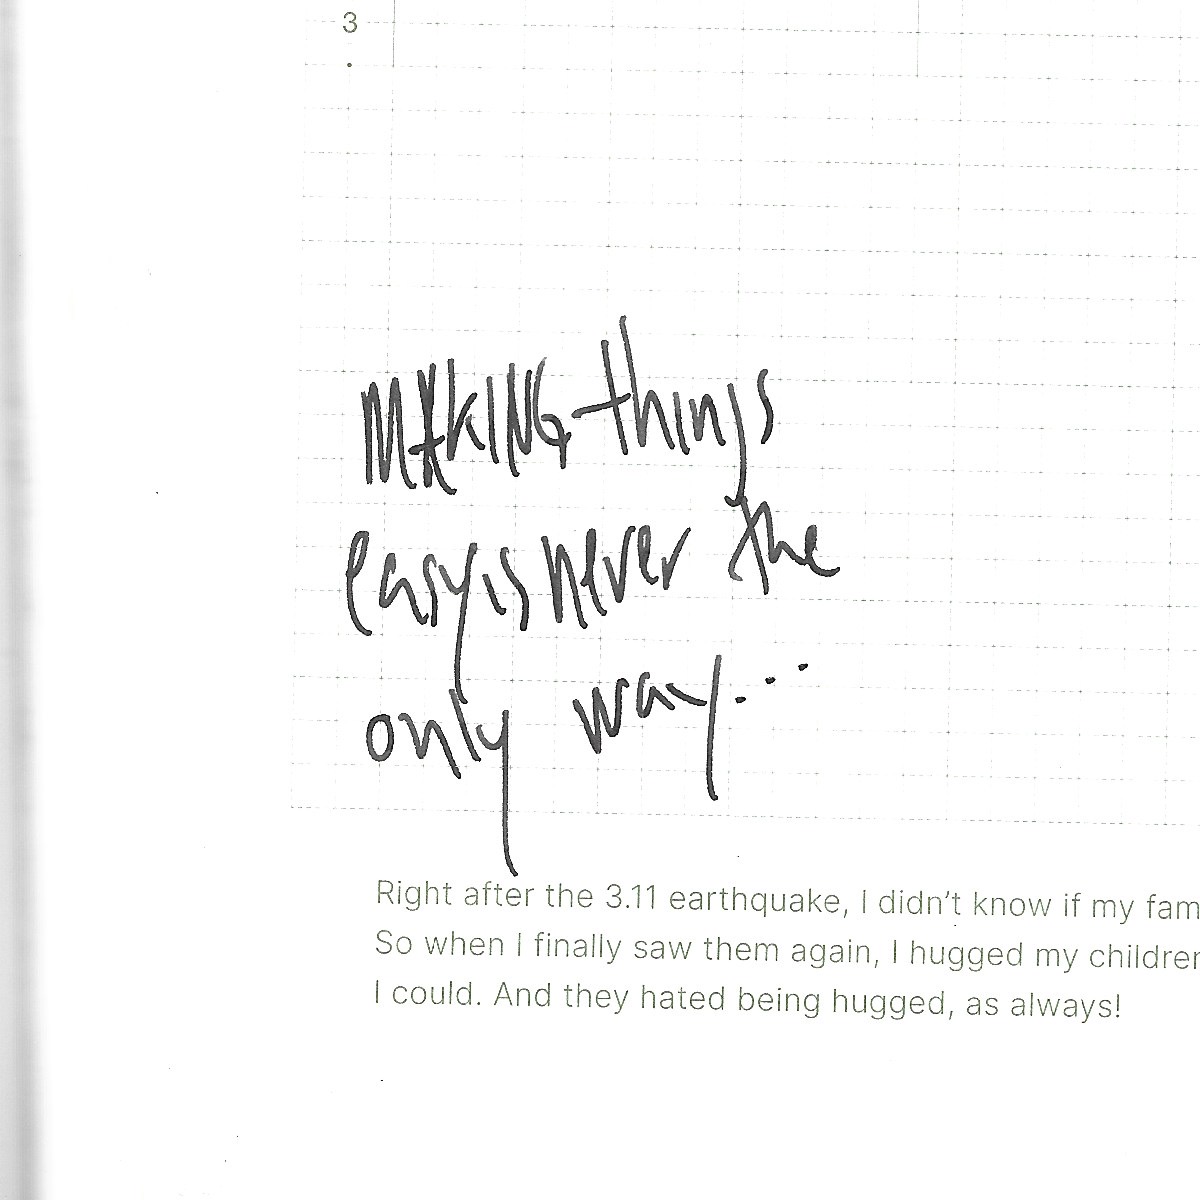 3
MAKING things
easy is never the
only way...
Right after the 3.11 earthquake, I didn't know if my fam
So when I finally saw them again, I hugged my childre
I could. And they hated being hugged, as always!